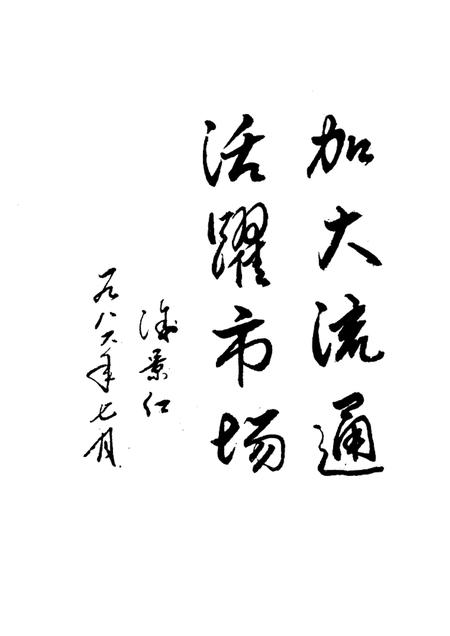 加大流通
活躍市场
景仁
一九八六年七月